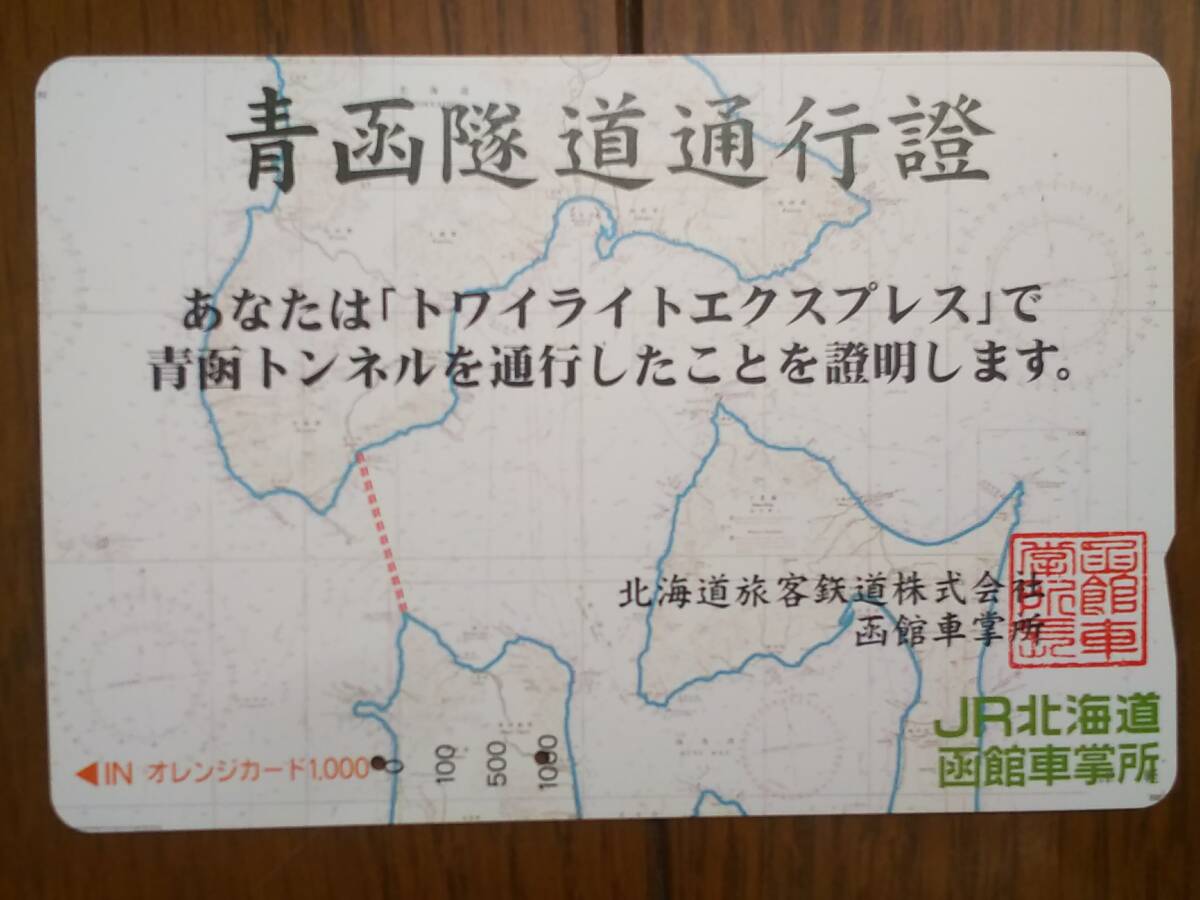 青函隧道通行證
あなたは「トワイライトエクスプレス」で
青函トンネルを通行したことを證明します。
北海道旅客鉄道株式会社
函館車掌所
函館車掌所長
JR北海道
函館車掌所
◀IN オレンジカード1.000
0 100 500 1000